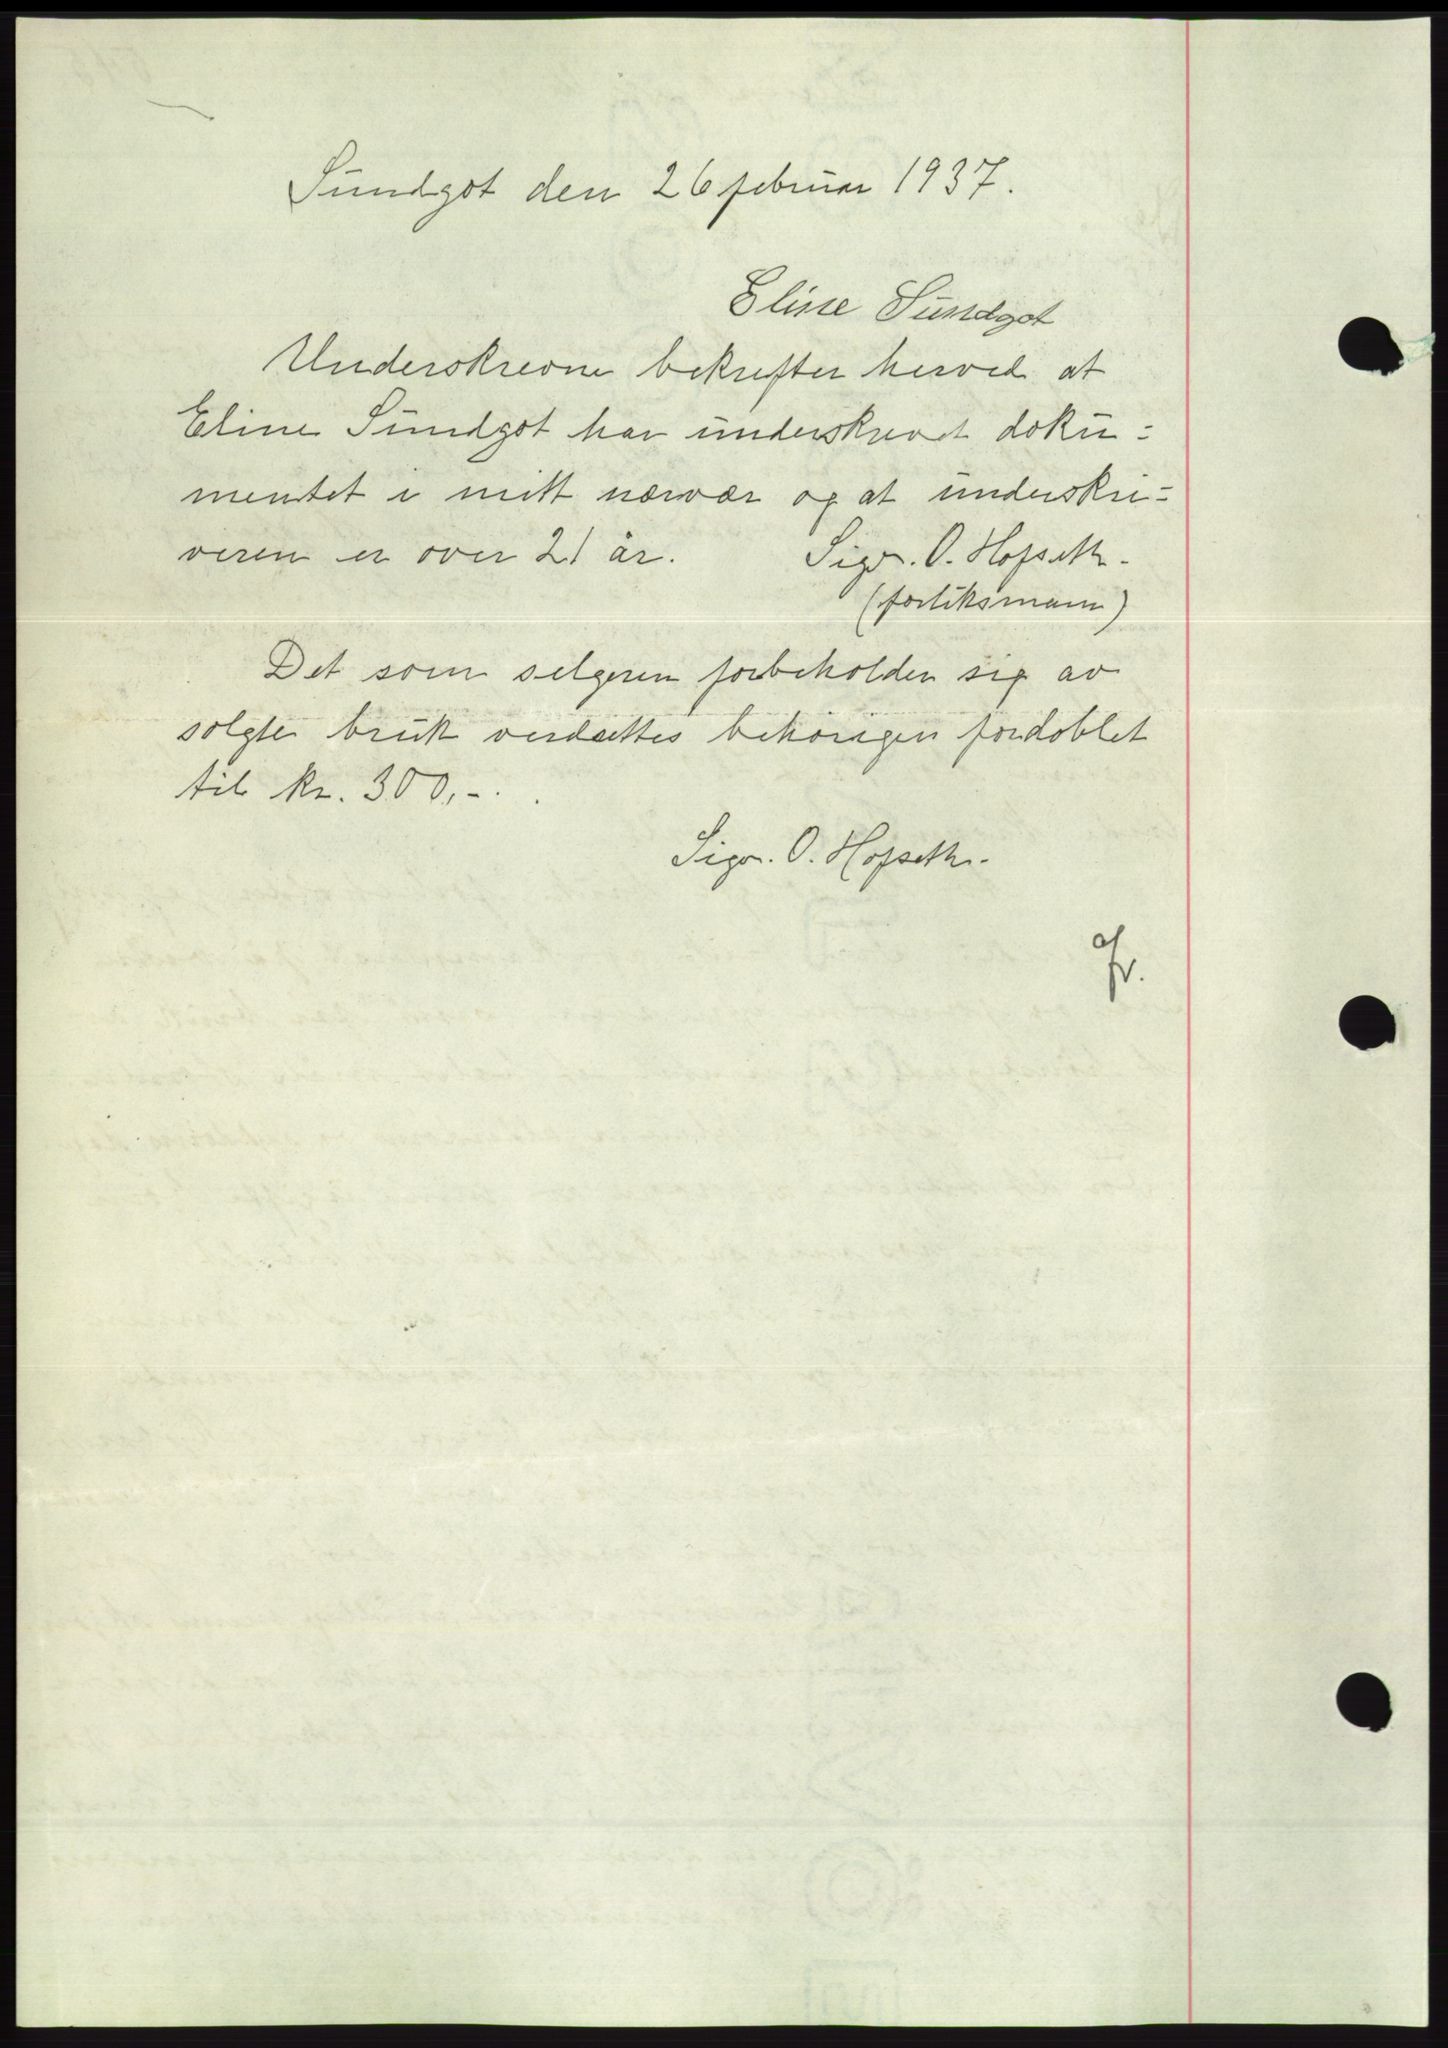 Sundgot den 26 februar 1937.
Eline Sundgot
Underskrevne bekrefter herved at
Eline Sundgot har underskrevet doku-
mentet i mitt nærvær og at underskri-
veren er over 21 år. Sigv. O. Hofseth.
(forliksmann)
Det som selgeren forbeholder sig av
solgte bruk verdsettes behørigen fordoblet
til kr. 300,-.
Sigv. O. Hofseth.